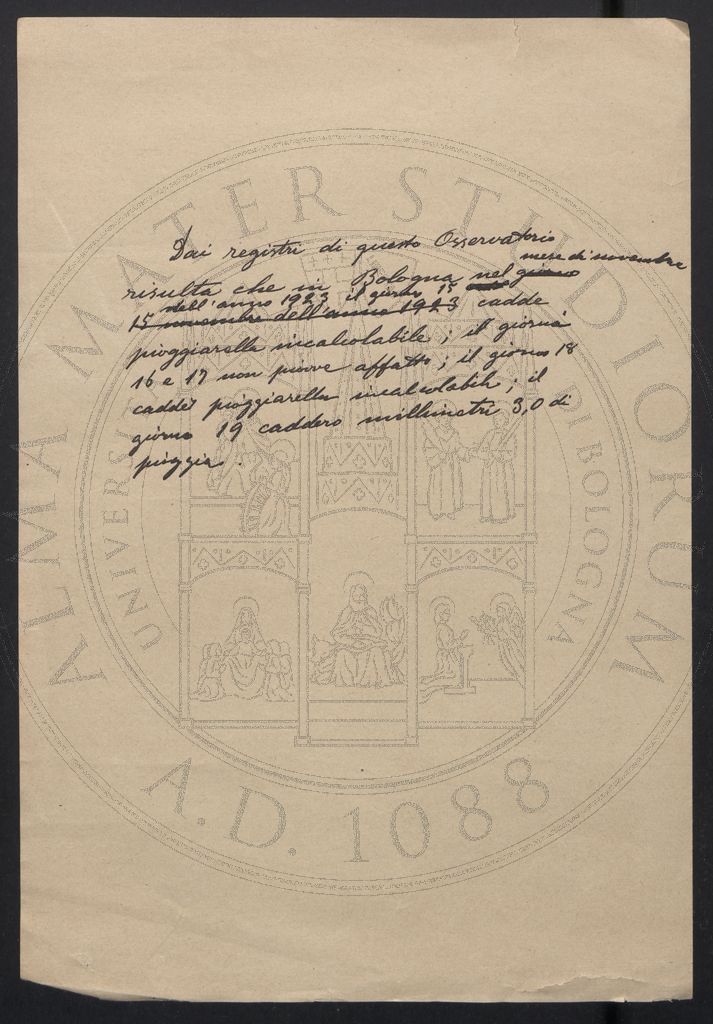 Dai registri di questo Osservatorio
mese di novembre
risulta che in Bologna nel giorno
dell'anno 1923 il giorno 15
15 novembre dell'anno 1923 cadde
pioggiarella incalcolabile; il giorno
16 e 17 non piovve affatto; il giorno 18
cadde pioggiarella incalcolabile; il
giorno 19 caddero millimetri 3,0 di
pioggia.
ALMA MATER STUDIORUM
UNIVERSITÀ DI BOLOGNA
A.D. 1088